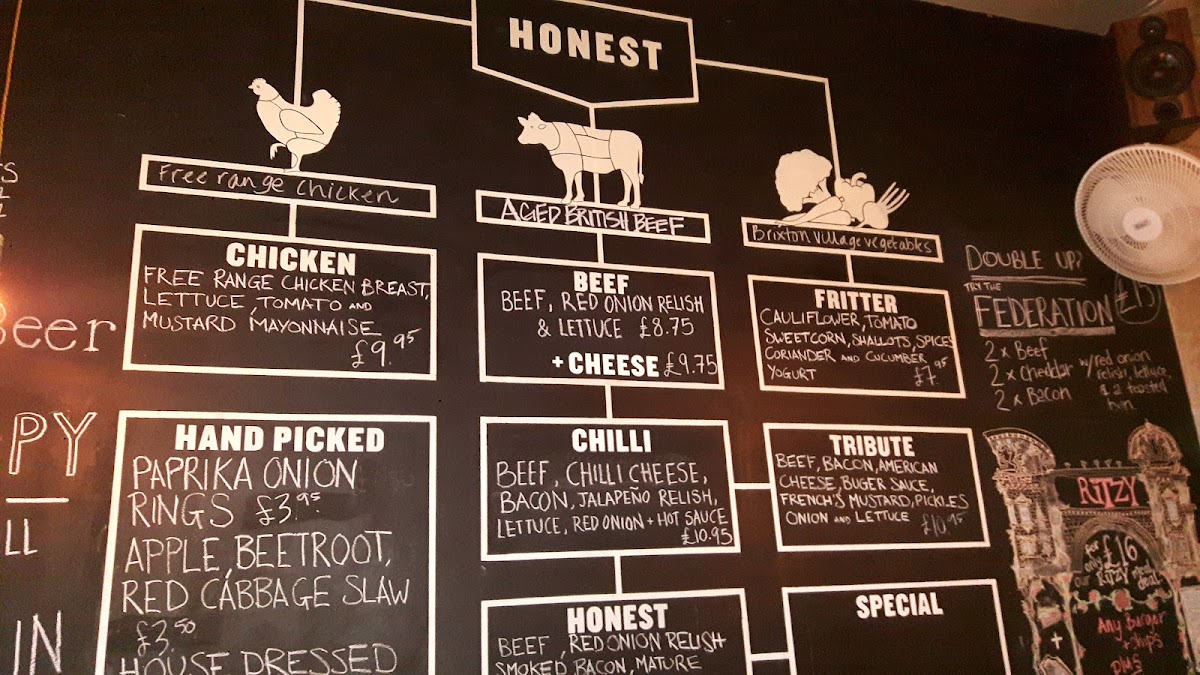 HONEST
Free range chicken
CHICKEN
FREE RANGE CHICKEN BREAST,
LETTUCE, TOMATO AND
MUSTARD MAYONNAISE
£9.95
HAND PICKED
PAPRIKA ONION
RINGS £3.95
APPLE, BEETROOT,
RED CABBAGE SLAW
£3.50
HOUSE DRESSED
AGED BRITISH BEEF
BEEF
BEEF, RED ONION RELISH
& LETTUCE £8.75
+ CHEESE £9.75
CHILLI
BEEF, CHILLI CHEESE,
BACON, JALAPEÑO RELISH,
LETTUCE, RED ONION + HOT SAUCE
£10.95
HONEST
BEEF, RED ONION RELISH
SMOKED BACON, MATURE
Brixton village vegetables
FRITTER
CAULIFLOWER, TOMATO
SWEETCORN, SHALLOTS, SPICES
CORIANDER AND CUCUMBER
YOGURT £7.95
TRIBUTE
BEEF, BACON, AMERICAN
CHEESE, BUGER SAUCE,
FRENCH'S MUSTARD, PICKLES
ONION AND LETTUCE £10.95
SPECIAL
DOUBLE UP?
TRY THE
FEDERATION £13
2 x Beef
2 x Cheddar
2 x Bacon
w/red onion
relish, lettuce
& a toasted
bun
RITZY
for £16
any
our RITZY meal
deal
Any burger
+ chips
plus
Beer
PY
LL
IN